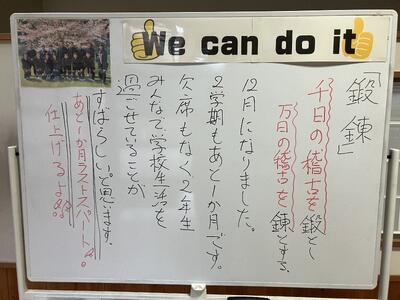 We can do it
「鍛錬」
千日の稽古を鍛とし
万日の稽古を錬とする
12月になりました。
2学期もあと一か月です。
欠席もなく2年生
みんなで学校生活を
過ごせていることが
すばらしいと思います。
あと一か月ラストスパート!
仕上げるよ